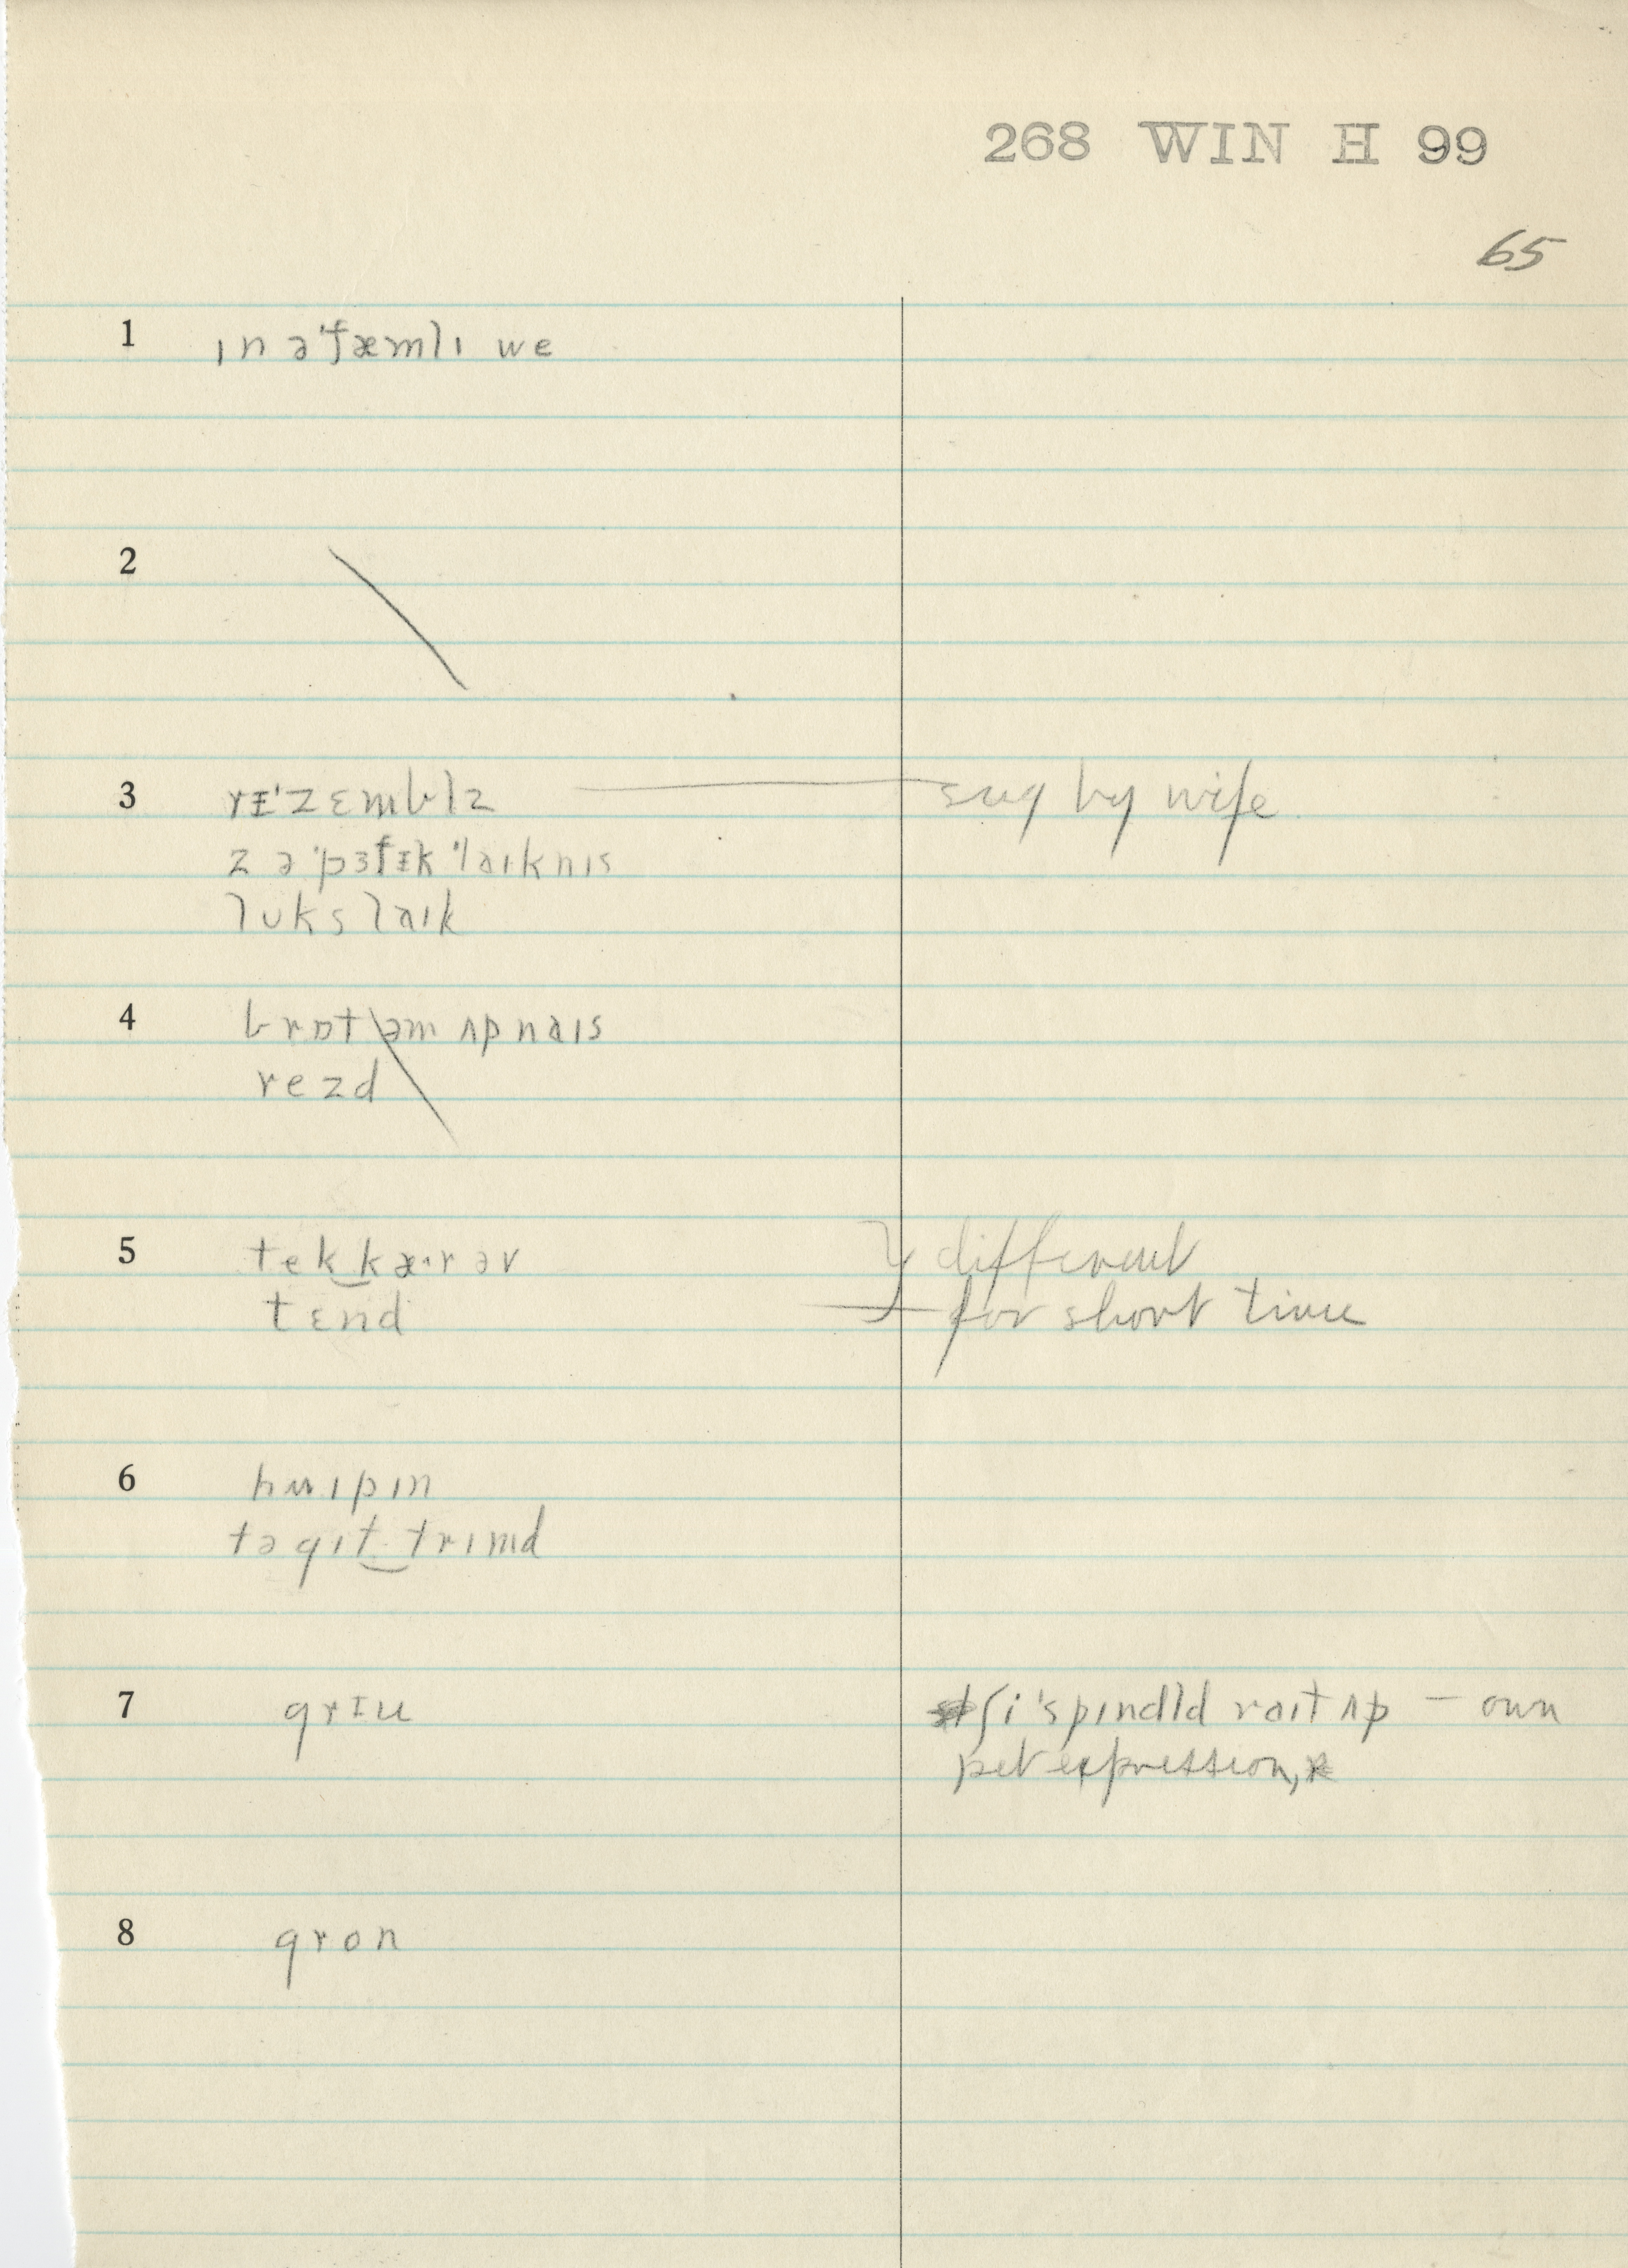 268 WIN H 99
65
1 ɪn ə ˈfæmlɪ we
2
3 rᵻˈzɛmblz sug by wife
z ə ˈpɜfᵻk ˈlaɪknɪs
lʊks laɪk
4 brɒt əm ʌp naɪs
rezd
5 tek‿kæ·r əv } different
tɛnd for short time
6 hwɪpɪn
tə gɪt‿trɪmd
7 grᵻu ʃi ˈspɪndld raɪt ʌp – own
pet expression,
8 gron